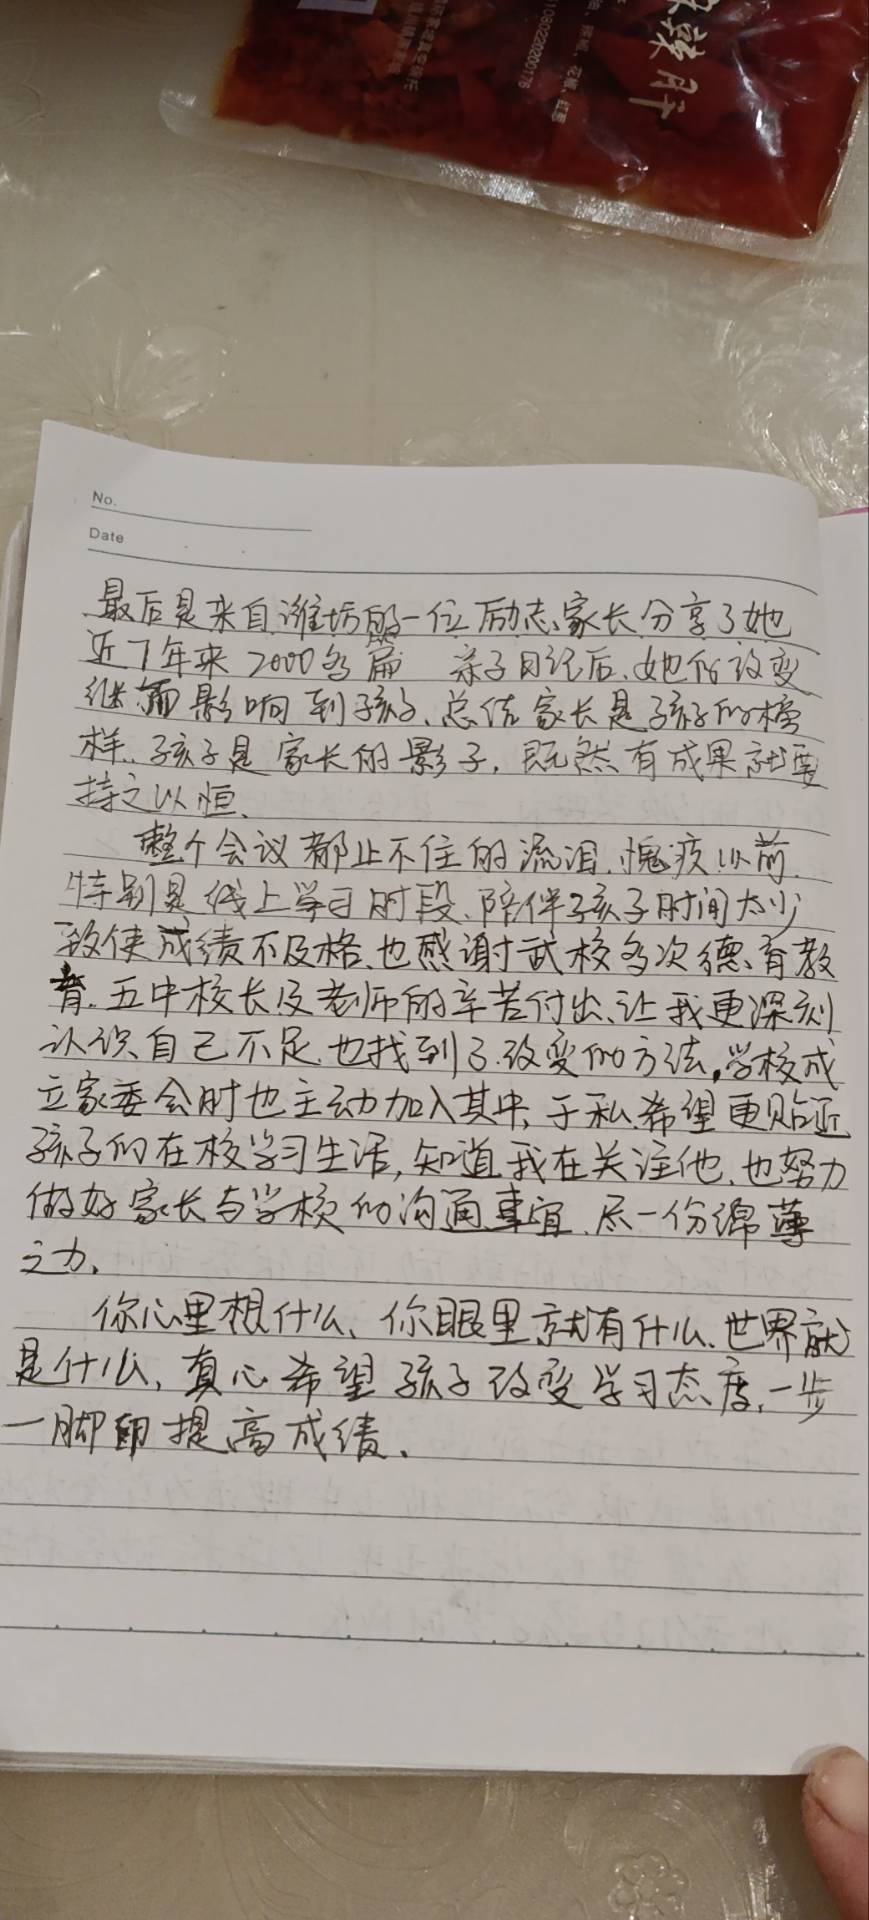 No.
Date
最后是来自潍坊的一位励志家长分享了她
近7年来2000多篇 亲子日记后、她的改变
继而影响到孩子、总结家长是孩子的榜
样、孩子是家长的影子，既然有成果就要
持之以恒、
整个会议都止不住的流泪、愧疚以前、
特别是线上学习时段、陪伴孩子时间太少
致使成绩不及格、也感谢武校多次德育教
育、五中校长及老师的辛苦付出、让我更深刻
认识自己不足、也找到了改变的方法。学校成
立家委会时也主动加入其中、于私希望更贴近
孩子们在校学习生活，知道我在关注他、也努力
做好家长与学校的沟通事宜、尽一份绵薄
之力、
你心里想什么、你眼里就有什么、世界就
是什么，真心希望孩子改变学习态度、一步
一脚印提高成绩、
1080220200176